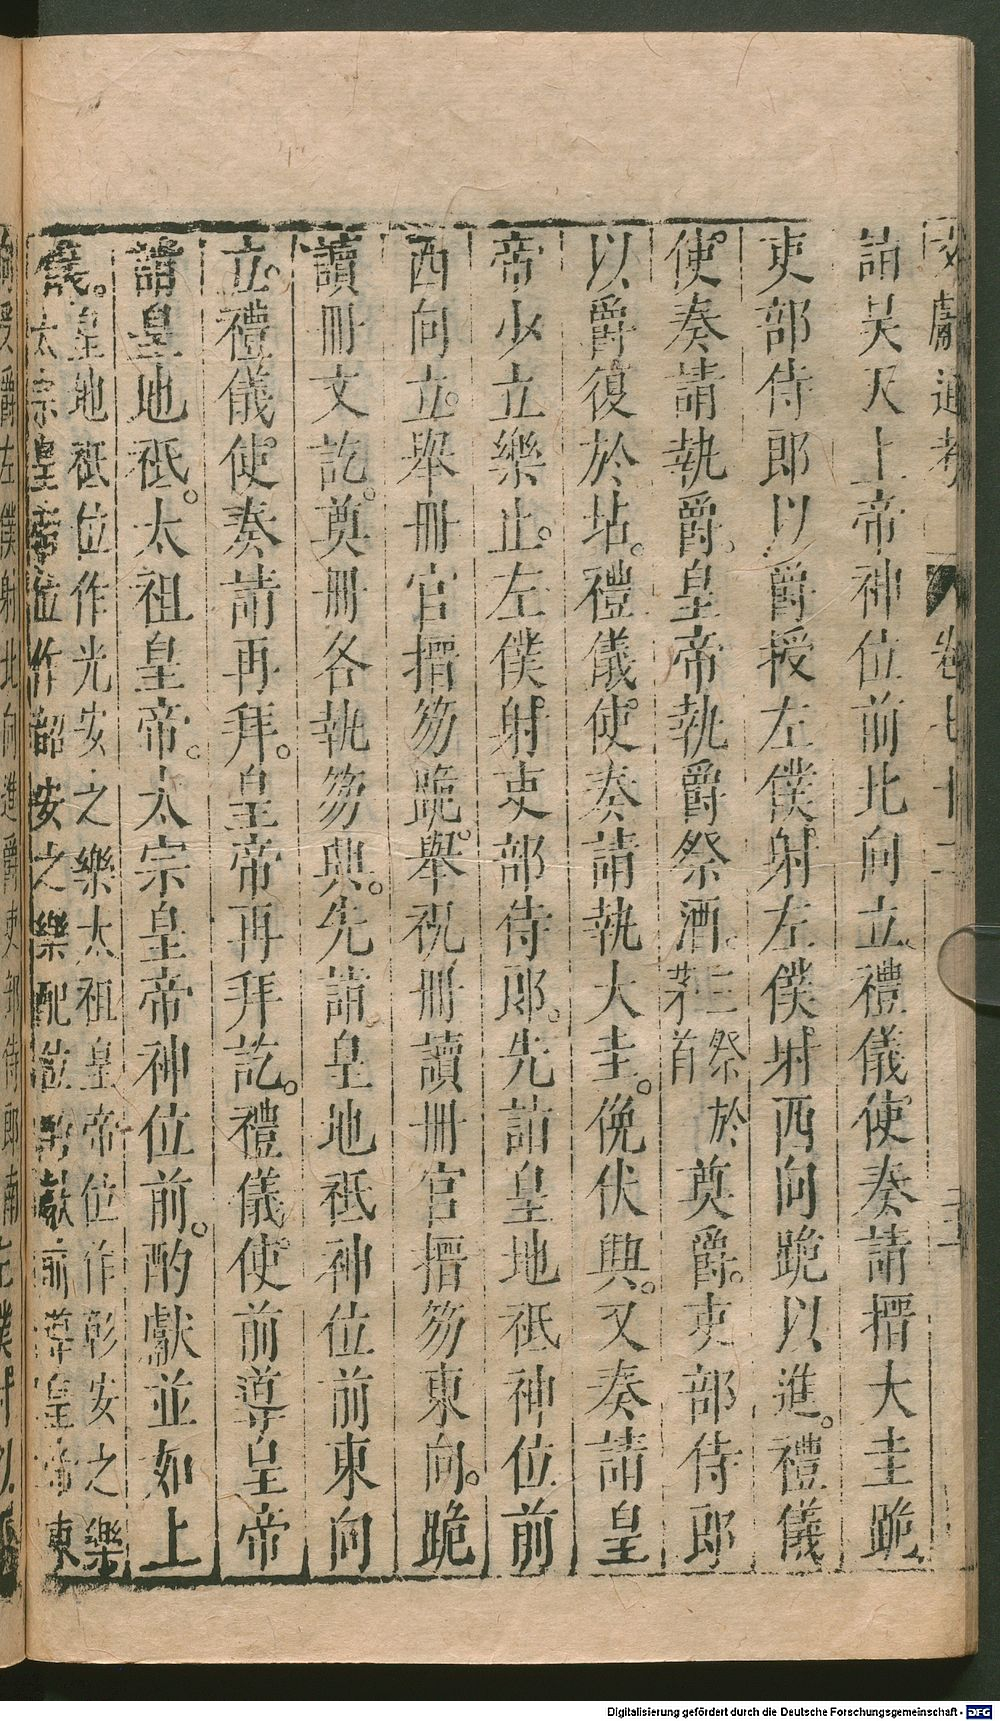 文獻通考 卷七十二 三
詣昊天上帝神位前北向立禮儀使奏請搢大圭跪
吏部侍郎以爵授左僕射左僕射西向跪以進。禮儀
使奏請執爵。皇帝執爵祭酒。三祭於茅苴奠爵。吏部侍郎
以爵復於坫。禮儀使奏請執大圭。俛伏興。又奏請皇
帝少立樂止。左僕射吏部侍郎。先詣皇地祇神位前
西向立。舉冊官搢笏跪。舉祝冊讀冊官搢笏東向。跪
讀冊文訖。奠冊各執笏興。先詣皇地祇神位前東向
立。禮儀使奏請再拜。皇帝再拜訖。禮儀使前導皇帝
詣皇地祇。太祖皇帝。太宗皇帝神位前。酌獻並如上
儀。皇地祇位作光安之樂太祖皇帝位作彰安之樂
太宗皇帝位作韶安之樂配位酌獻前導皇帝東
左僕射北向進爵吏部侍郎南
Digitalisierung gefördert durch die Deutsche Forschungsgemeinschaft - DFG